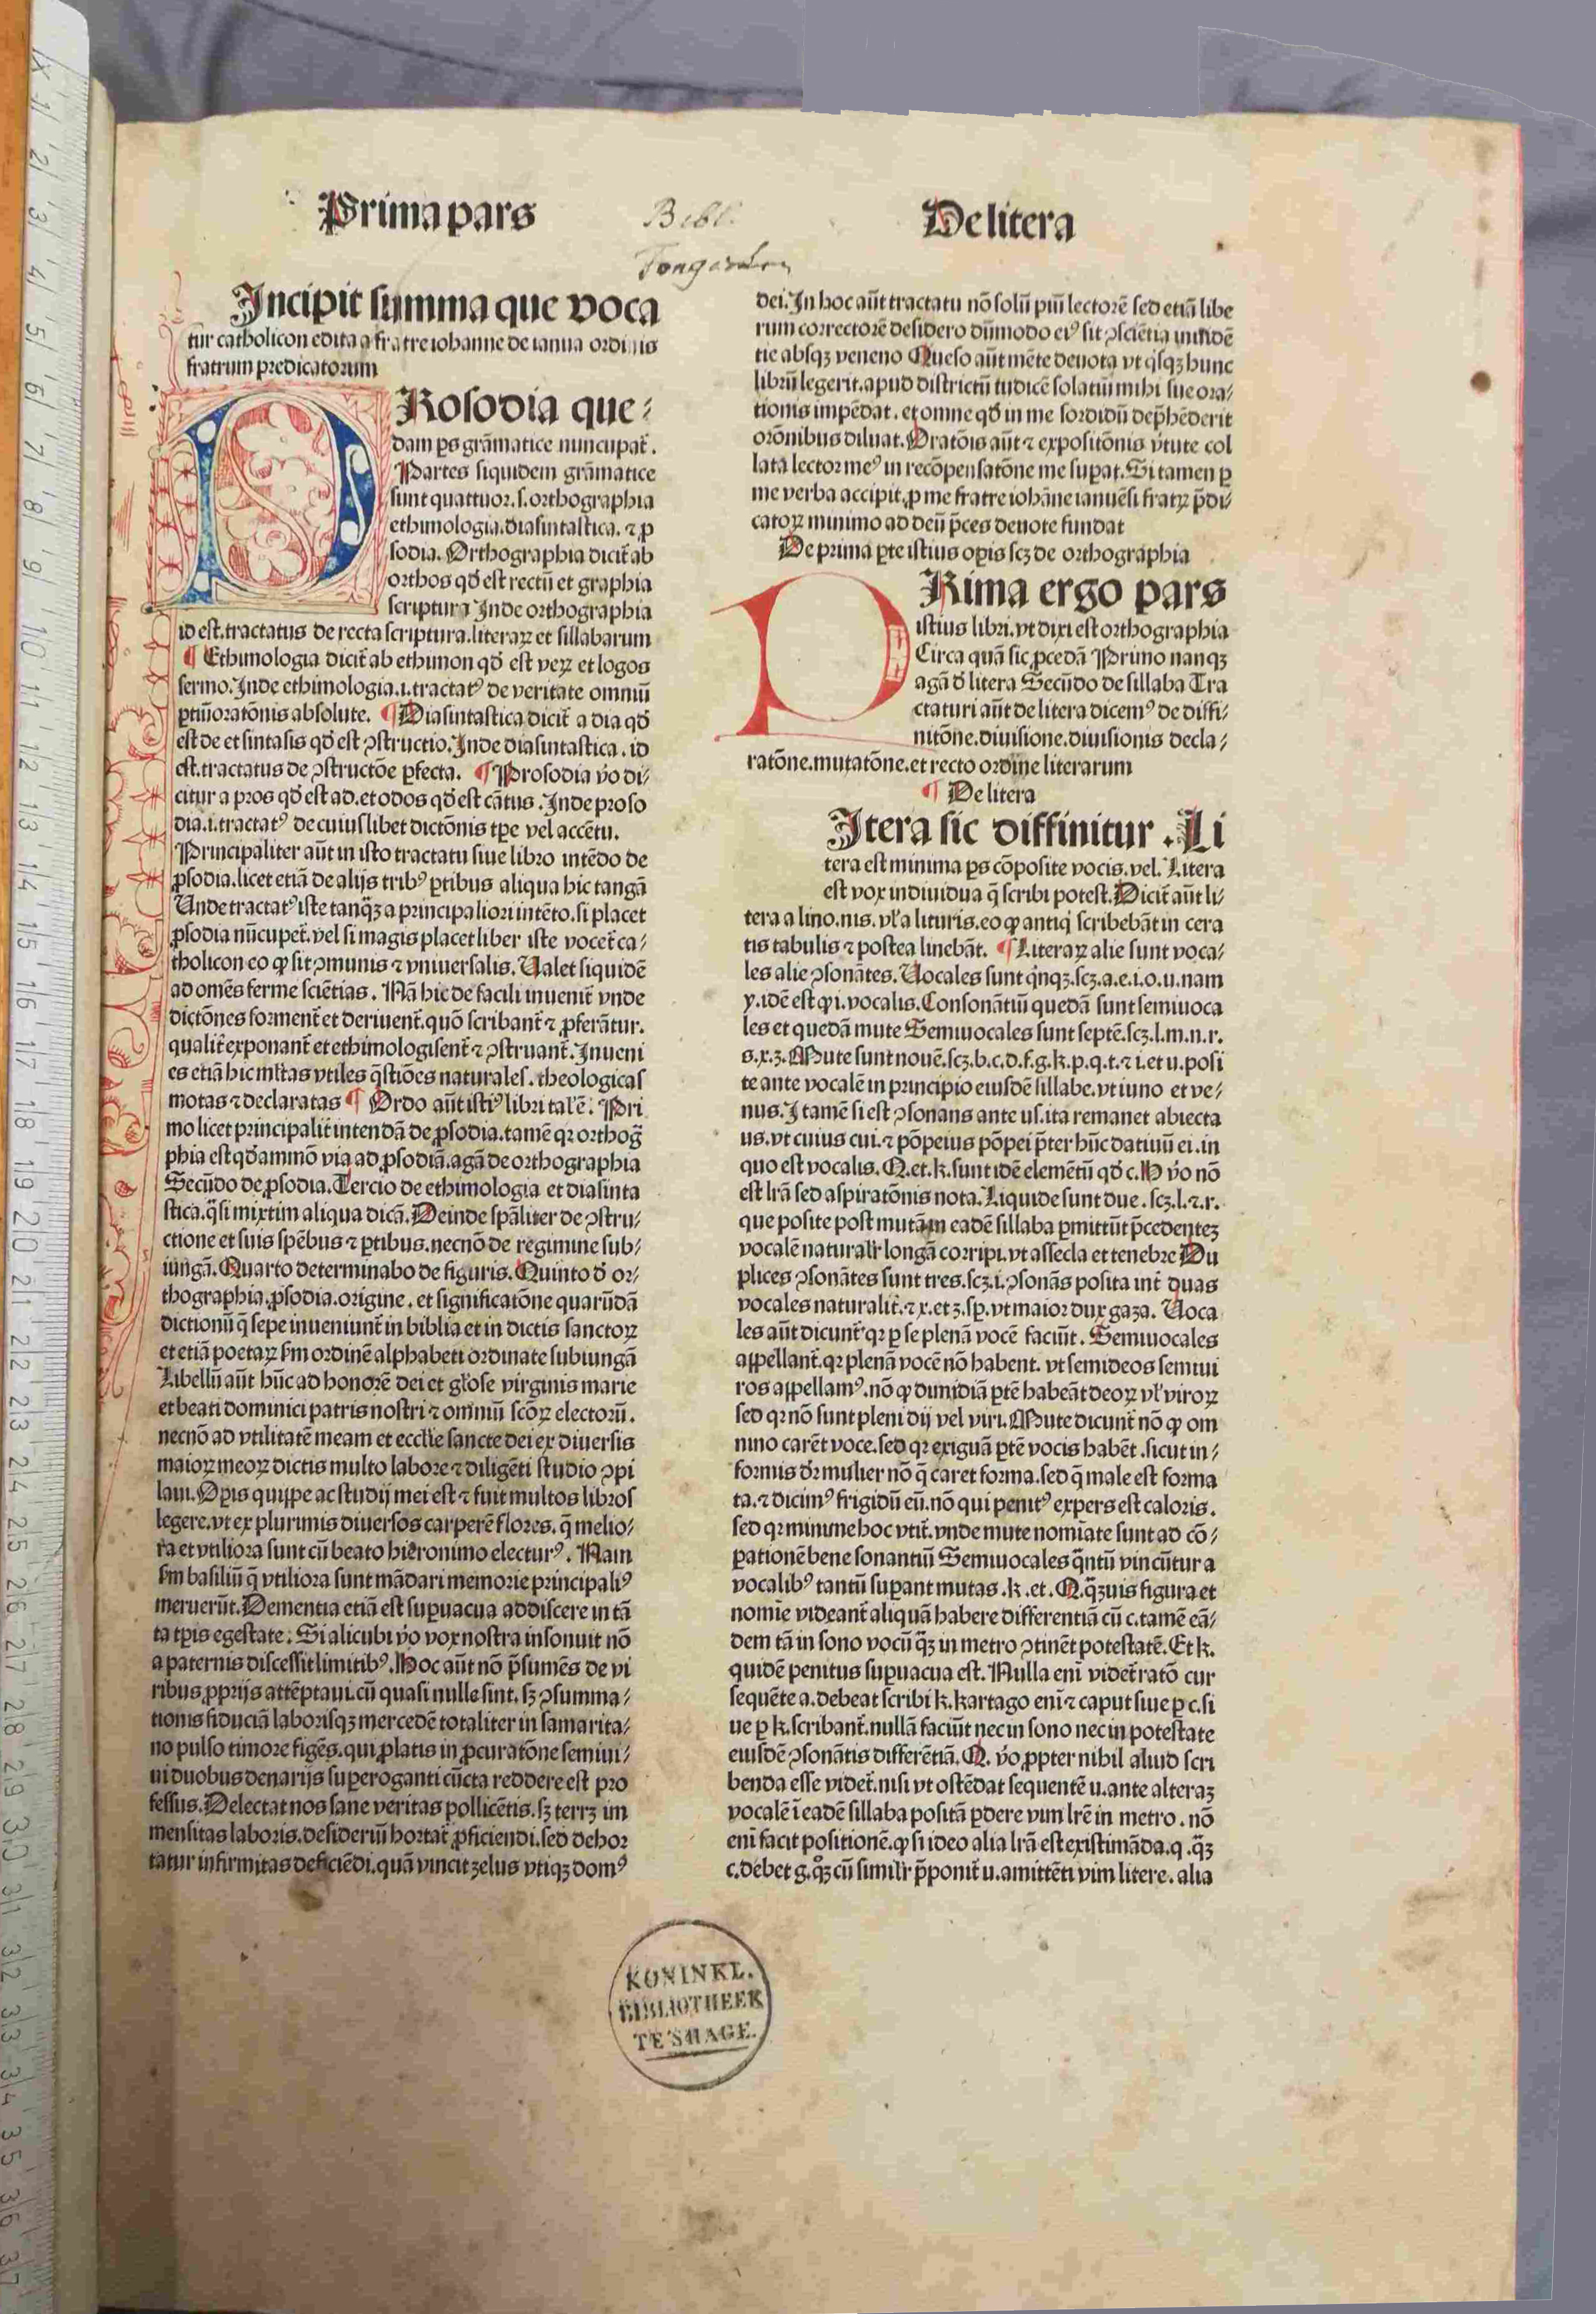 Prima pars
Bibl.
Tongerlo
De litera
Incipit summa que voca
tur catholicon edita a fratre iohanne de ianua ordinis
fratrum predicatorum
Rosodia que⸗
dam ꝑs grãmatice nuncupat᷑.
Partes siquidem grãmatice
sunt quattuor.s.orthographia
ethimologia.diasintastica.⁊ ꝓ
sodia. Orthographia dicit᷑ ab
orthos qđ est rectũ et graphia
scriptura Inde orthographia
id est.tractatus de recta scriptura.literaꝝ et sillabarum
¶ Ethimologia dicit᷑ ab ethimon qđ est veꝝ et logos
sermo.Inde ethimologia.i.tractatꝰ de veritate omniũ
ꝑtiũ oratõnis absolute. ¶ Diasintastica dicit᷑ a dia qđ
est de et sintasis qđ est ꝯstructio.Inde diasintastica.id
est.tractatus de ꝯstructõe ꝑfecta. ¶ Prosodia ṽo di⸗
citur a pros qđ est ad.et odos qđ est cãtus.Inde proso
dia.i.tractatꝰ de cuiuslibet dictõnis tꝑe vel accẽtu.
Principaliter aũt in isto tractatu siue libro intẽdo de
ꝓsodia.licet etiã de alijs tribꝰ ꝑtibus aliqua hic tangã
Unde tractatꝰ iste tanq̃ꝫ a principaliori intẽto.si placet
ꝓsodia nũcupet᷑.vel si magis placet liber iste vocet᷑ ca⸗
tholicon eo ꝙ sit ꝯmunis ⁊ vniuersalis. Ualet siquidẽ
ad omẽs ferme sciẽtias. Nã hic de facili inuenit᷑ vnde
dictõnes forment᷑ et deriuent᷑.quõ scribant᷑ ⁊ ꝓferãtur.
qualit᷑ exponant᷑ et ethimologisent᷑ ⁊ ꝯstruant᷑. Inueni
es etiã hic mltas vtiles q̃stiões naturales.theologicas
motas ⁊ declaratas ¶ Ordo aũt istiꝰ libri tal̃ ẽ. Pri
mo licet principalit᷑ intendã de ꝓsodia.tamẽ qꝛ orthog̃
phia est qđammõ via ad ꝓsodiã.agã de orthographia
Secũdo de ꝓsodia.Tercio de ethimologia et diasinta
stica.q̃si mixtim aliqua dicã.Deinde spãliter de ꝯstru⸗
ctione et suis spẽbus ⁊ ꝑtibus.necnõ de regimine sub⸗
iungã.Quarto determinabo de figuris.Quinto đ or⸗
thographia.ꝓsodia.origine.et significatõne quarũdã
dictionũ q̃ sepe inueniunt᷑ in biblia et in dictis sanctoꝝ
et etiã poetaꝝ ẜm ordinẽ alphabeti ordinate subiungã
Libellũ aũt hũc ad honorẽ dei et gl̃ose virginis marie
et beati dominici patris nostri ⁊ omniũ scõꝝ electorũ.
necnõ ad vtilitatẽ meam et eccl̃ie sancte dei ex diuersis
maioꝝ meoꝝ dictis multo labore ⁊ diligẽti studio ꝯpi
laui.Opis quippe ac studij mei est ⁊ fuit multos libros
legere.vt ex plurimis diuersos carperẽ flores.q̃ melio⸗
ra et vtiliora sunt cũ beato hieronimo electurꝰ. Nam
ẜm basiliũ q̃ vtiliora sunt mãdari memorie principaliꝰ
meruerũt.Dementia etiã est suꝑuacua addiscere in tã
ta tꝑis egestate. Si alicubi ṽo vox nostra insonuit nõ
a paternis discessit limitibꝰ.Hoc aũt nõ p̃sumẽs de vi
ribus ꝓprijs attẽptaui.cũ quasi nulle sint.sꝫ ꝯsumma⸗
tionis fiduciã laborisqꝫ mercedẽ totaliter in samarita⸗
no pulso timore figẽs.qui ꝓlatis in ꝓcuratõne semiui⸗
ui duobus denarijs superoganti cũcta reddere est pro
fessus.Delectat nos sane veritas pollicẽtis.sꝫ terrꝫ im
mensitas laboris.desideriũ hortat᷑ ꝓficiendi.sed dehor
tatur infirmitas deficiẽdi.quã vincit zelus vtiqꝫ domꝰ
dei.In hoc aũt tractatu nõ solũ piũ lectorẽ sed etiã libe
rum correctorẽ desidero dũmodo eiꝰ sit ꝯsciẽtia mũdẽ
tie absqꝫ veneno Queso aũt mẽte deuota vt q̇sqꝫ hunc
librũ legerit.apud districtũ iudicẽ solatiũ mihi sue ora⸗
tionis impẽdat.et omne qđ in me sordidũ dep̃hẽderit
orõnibus diluat.Oratõis aũt ⁊ expositõnis ṽtute col
lata lector meꝰ in recõpensatõne me supat.Si tamen ꝑ
me verba accipit.ꝓ me fratre iohãne ianuẽsi fratꝝ p̃di⸗
catoꝝ minimo ad deũ p̃ces deuote fundat
De prima ꝑte istius opis scꝫ de orthographia
Rima ergo pars
istius libri.vt dixi est orthographia
Circa quã sic ꝓcedã Primo nanqꝫ
agã đ litera Secũdo de sillaba Tra
ctaturi aũt de litera dicemꝰ de diffi⸗
nitõne.diuisione.diuisionis decla⸗
ratõne.mutatõne.et recto ordine literarum
¶ De litera
Itera sic diffinitur . Li
tera est minima ꝑs cõposite vocis.vel. Litera
est vox indiuidua q̃ scribi potest.Dicit᷑ aũt li⸗
tera a lino.nis.vl̃ a lituris.eo ꝙ antiq̇ scribebãt in cera
tis tabulis ⁊ postea linebãt. ¶ Literaꝝ alie sunt voca⸗
les alie ꝯsonãtes.Uocales sunt q̇nqꝫ.scꝫ.a.e.i.o.u.nam
y.idẽ est ꝙ i.vocalis.Consonãtiũ quedã sunt semiuoca
les et quedã mute Semiuocales sunt septẽ.scꝫ.l.m.n.r.
s.x.z.Mute sunt nouẽ.scꝫ.b.c.d.f.g.k.p.q.t.⁊ i.et u.posi
te ante vocalẽ in principio eiusdẽ sillabe.vt iuno et ve⸗
nus.I tamẽ si est ꝯsonans ante us.ita remanet abiecta
us.vt cuius cui.⁊ põpeius põpei p̃ter hũc datiuũ ei.in
quo est vocalis.Q.et.k.sunt idẽ elemẽtũ qđ c.H ṽo nõ
est lr̃a sed aspiratõnis nota.Liquide sunt due.scꝫ.l.⁊.r.
que posite post mutã in eadẽ sillaba ꝑmittũt p̃cedentez
vocalẽ naturalr̃ longã corripi.vt assecla et tenebre Du
plices ꝯsonãtes sunt tres.scꝫ.i.ꝯsonãs posita int᷑ duas
vocales naturalit᷑.⁊ x.et z.sp̃.vt maior dux gaza. Uoca
les aũt dicunt᷑ qꝛ ꝑ se plenã vocẽ faciũt. Semiuocales
appellant᷑.qꝛ plenã vocẽ nõ habent.vt semideos semiui
ros appellamꝰ.nõ ꝙ dimidiã ꝑtẽ habeãt deoꝝ vl̃ viroꝝ
sed qꝛ nõ sunt pleni dij vel viri.Mute dicunt᷑ nõ ꝙ om
nino carẽt voce.sed qꝛ exiguã ꝑtẽ vocis habẽt.sicut in⸗
formis dr̃ mulier nõ q̃ caret forma.sed q̃ male est forma
ta.⁊ dicimꝰ frigidũ eũ.nõ qui penitꝰ expers est caloris.
sed qꝛ minime hoc vtit᷑.vnde mute nomĩate sunt ad cõ⸗
ꝑationẽ bene sonantiũ Semiuocales q̃ntũ vincũtur a
vocalibꝰ tantũ suꝑant mutas.k.et.Q.q̃ꝫuis figura et
nomĩe videant᷑ aliquã habere differentiã cũ c.tamẽ eã⸗
dem tã in sono vocũ q̃ꝫ in metro ꝯtinẽt potestatẽ.Et k.
quidẽ penitus suꝑuacua est.Nulla enĩ videt᷑ ratõ cur
sequẽte a.debeat scribi k.kartago enĩ ⁊ caput siue ꝑ c.si
ue ꝑ k.scribant᷑.nullã faciũt nec in sono nec in potestate
eiusdẽ ꝯsonãtis differẽtiã.Q. ṽo ꝓpter nihil aliud scri
benda esse videt᷑.nisi vt ostẽdat sequentẽ u.ante alteraꝫ
vocalẽ ĩ eadẽ sillaba positã ꝑdere vim lr̃e in metro.nõ
enĩ facit positionẽ.ꝙ si ideo alia lr̃a est existimãda.q.q̃ꝫ
c.debet g.q̃ꝫ cũ similr̃ p̃ponit᷑ u.amittẽti vim litere.alia
KONINKL.
BIBLIOTHEEK
TE'SHAGE.